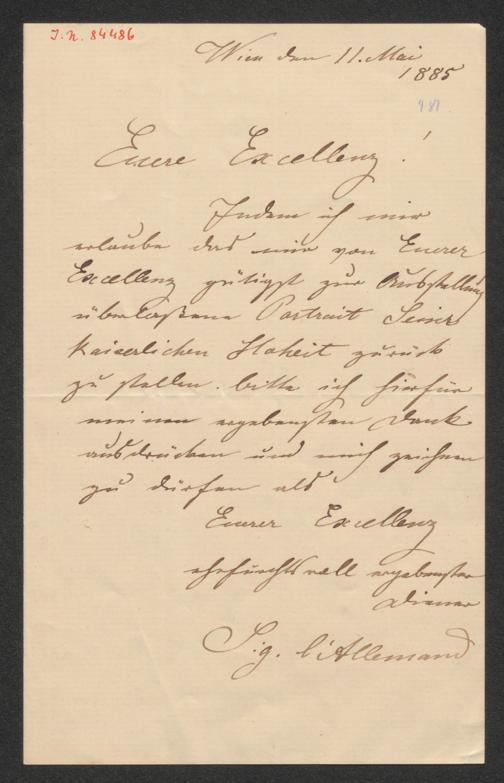 J.N. 84486
Wien den 11. Mai
1885
Euere Excellenz!
Indem ich mir
erlaube das mir von Euerer
Excellenz gütigst zur Ausstellung
überlaßene Portrait Seiner
Kaiserlichen Hoheit zurück
zu stellen. bitte ich hierfür
meinen ergebensten Dank
ausdrücken und mich zeichnen
zu dürfen als
Euerer Excellenz
ehrfurchtsvoll ergebenster
Diener
Sig. l'Allemand